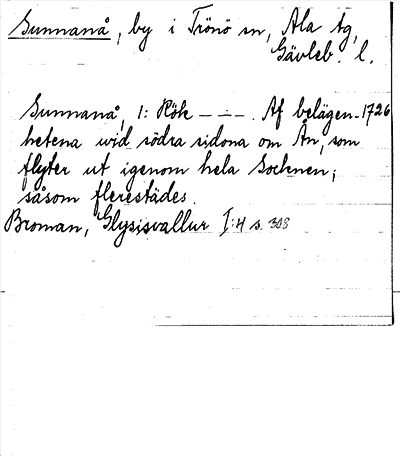 Sunnanå, by i Trönö sn, Ala tg,
Gävleb. l.
Sunnanå, 1: Rök — · — . Af belägen- 1726
hetena wid södra sidona om Ån, som
flyter ut igenom hela Socknen;
såsom flerestädes.
Broman, Glysisvallur I:4 s. 303